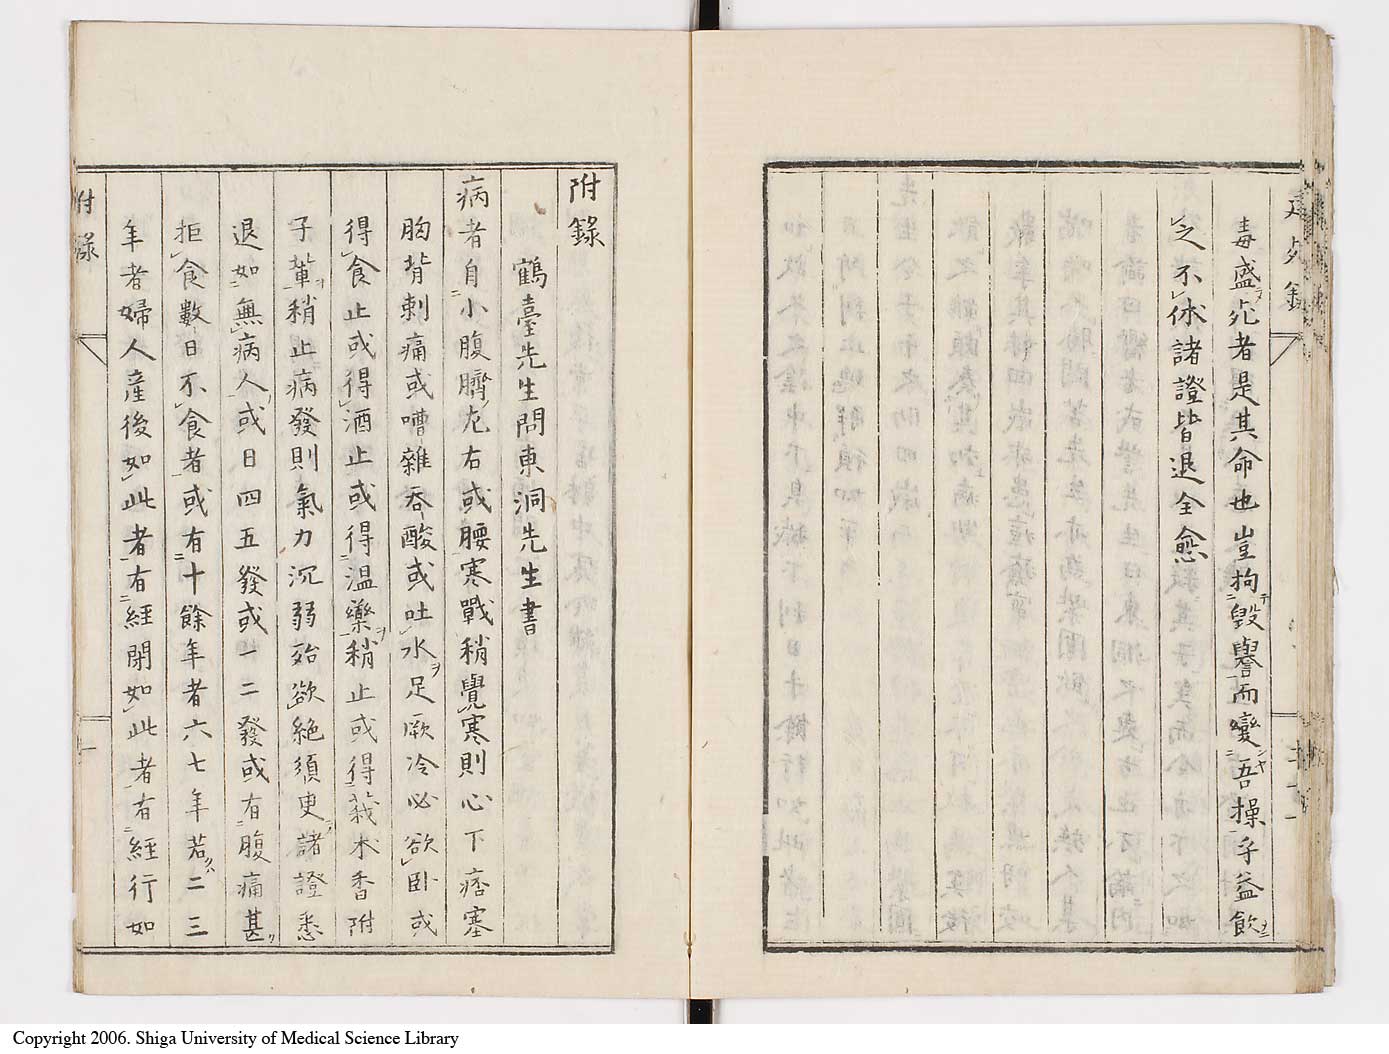 毒盛死者是其命也豈拘毀譽而變吾操乎益飲
之不休諸證皆退全愈
附錄
鶴臺先生問東洞先生書
病者自小腹臍左右或腰寒戰稍覺寒則心下痞塞
胸背刺痛或嘈雜吞酸或吐水足厥冷必欲臥或
得食止或得酒止或得溫藥稍止或得莪朮香附
子輩稍止病發則氣力沉弱殆欲絶須臾諸證悉
退如無病人或日四五發或一二發或有腹痛甚
拒食數日不食者或有十餘年者六七年若二三
年者婦人產後如此者有經閉如此者有經行如
附錄
Copyright 2006. Shiga University of Medical Science Library